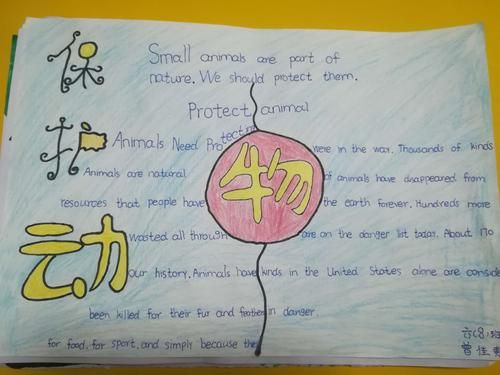 保
护
动
物
Small animals are part of
nature. We should protect them.
Protect animal
Animals Need Protecting
Animals are natural
resources that people have
wasted all through
our history. Animals have
been killed for their fur and
for food, for sport, and simply because
were in the way. Thousands of kinds
of animals have disappeared from
the earth forever. Hundreds more
are on the danger list today. About 170
kinds in the United States alone are conside
in danger.
六(8)班
曾佳